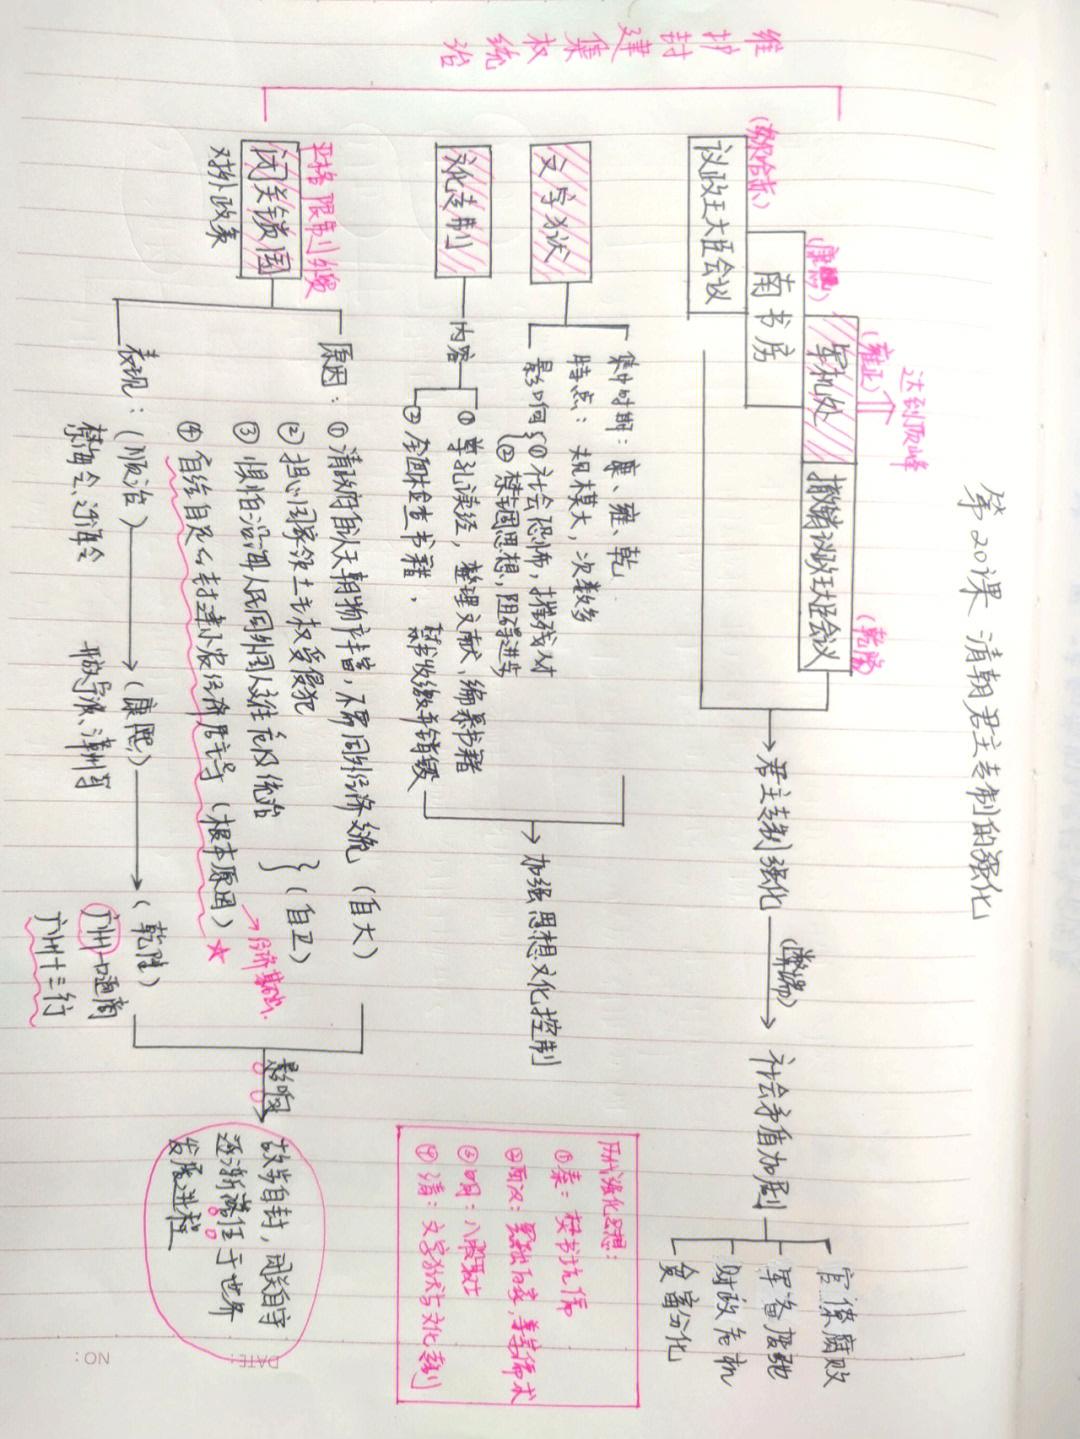 第20课 清朝君主专制的强化
维护封建集权统治
达到顶峰
(努尔哈赤)
(康熙)
(雍正)
(乾隆)
议政王大臣会议
南书房
军机处
撤销议政王大臣会议
君主专制强化
(弊端)
社会矛盾加剧
官僚腐败
军备废弛
财政危机
贫富分化
文字狱
集中时期：康、雍、乾
特点：规模大，次数多
影响
①社会恐怖，摧残人才
②禁锢思想，阻碍进步
文化专制
内容
①尊孔读经，整理文献、编纂书籍
②全面检查书籍，
收缴并销毁
加强思想文化控制
严格限制外贸
闭关锁国
对外政策
原因：
①清政府自认天朝物产丰富，不需同外经济交流 (自大)
②担心国家领土主权受侵犯
③惧怕沿海人民同外国人交往危及统治
(自卫)
④自给自足的封建小农经济占主导 (根本原因)
经济基础
表现：(顺治)
(康熙)
(乾隆)
禁海令、迁海令
开放宁波、漳州等
广州一口通商
广州十三行
影响
故步自封，闭关自守
逐渐落伍于世界
发展进程
历代强化思想：
①秦：焚书坑儒
②西汉：罢黜百家，尊崇儒术
③明：八股取士
④清：文字狱与文化专制
DATE:
NO: